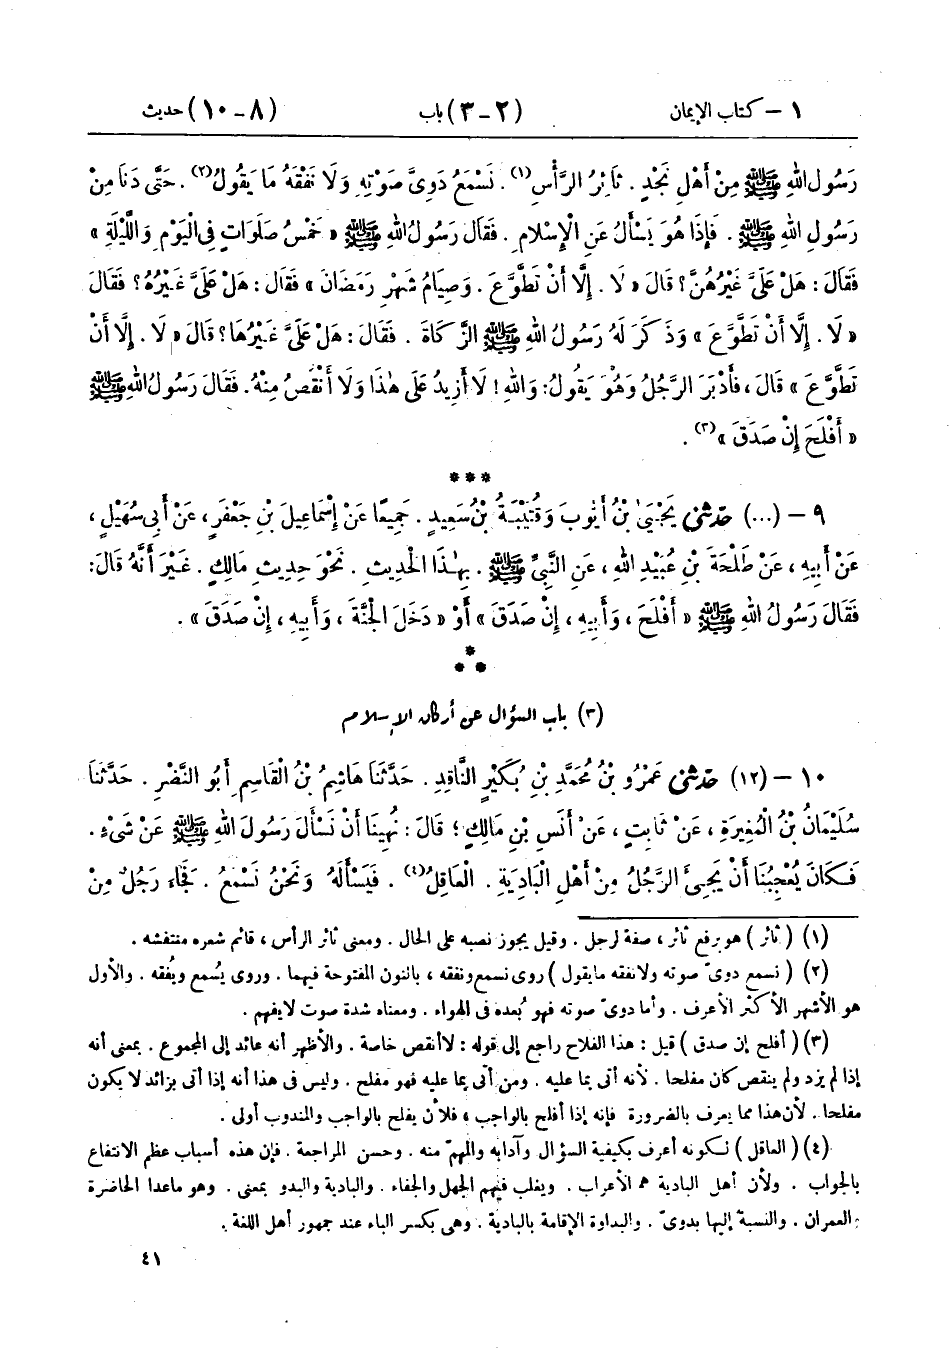 ١ – كتاب الإيمان (٢–٣) باب (٨–١٠) حديث
رَسُولِ اللهِ ﷺ مِنْ أَهْلِ نَجْدٍ . ثَائِرُ الرَّأْسِ(١) . نَسْمَعُ دَوِىَّ صَوْتِهِ وَلَا نَفْقَهُ مَا يَقُولُ(٢) . حَتَّى دَنَا مِنْ
رَسُولِ اللهِ ﷺ . فَإِذَا هُوَ يَسْأَلُ عَنِ الْإِسْلَامِ . فَقَالَ رَسُولُ اللهِ ﷺ « خَمْسُ صَلَوَاتٍ فِى الْيَوْمِ وَاللَّيْلَةِ »
فَقَالَ : هَلْ عَلَىَّ غَيْرُهُنَّ ؟ قَالَ « لَا . إِلَّا أَنْ تَطَّوَّعَ . وَصِيَامُ شَهْرِ رَمَضَانَ » فَقَالَ : هَلْ عَلَىَّ غَيْرُهُ ؟ فَقَالَ
« لَا . إِلَّا أَنْ تَطَّوَّعَ » وَذَكَرَ لَهُ رَسُولُ اللهِ ﷺ الزَّكَاةَ . فَقَالَ : هَلْ عَلَىَّ غَيْرُهَا ؟ قَالَ « لَا . إِلَّا أَنْ
تَطَّوَّعَ » قَالَ ، فَأَدْبَرَ الرَّجُلُ وَهُوَ يَقُولُ : وَاللهِ ! لَا أَزِيدُ عَلَى هٰذَا وَلَا أَنْقُصُ مِنْهُ . فَقَالَ رَسُولُ اللهِ ﷺ
« أَفْلَحَ إِنْ صَدَقَ »(٣) .
***
٩ – (...) حَدَّثَنِى يَحْيَىٰ بْنُ أَيُّوبَ وَقُتَيْبَةُ بْنُ سَعِيدٍ . جَمِيعًا عَنْ إِسْمَاعِيلَ بْنِ جَعْفَرٍ ، عَنْ أَبِى سُهَيْلٍ ،
عَنْ أَبِيهِ ، عَنْ طَلْحَةَ بْنِ عُبَيْدِ اللهِ ، عَنِ النَّبِىِّ ﷺ . بِهٰذَا الْحَدِيثِ . نَحْوَ حَدِيثِ مَالِكٍ . غَيْرَ أَنَّهُ قَالَ :
فَقَالَ رَسُولُ اللهِ ﷺ « أَفْلَحَ ، وَأَبِيهِ ، إِنْ صَدَقَ » أَوْ « دَخَلَ الْجَنَّةَ ، وَأَبِيهِ ، إِنْ صَدَقَ » .
*
* *
(٣) باب السؤال عن أركان الإسلام
١٠ – (١٢) حَدَّثَنِى عَمْرُو بْنُ مُحَمَّدِ بْنِ بُكَيْرٍ النَّاقِدُ . حَدَّثَنَا هَاشِمُ بْنُ الْقَاسِمِ أَبُو النَّضْرِ . حَدَّثَنَا
سُلَيْمَانُ بْنُ الْمُغِيرَةِ ، عَنْ ثَابِتٍ ، عَنْ أَنَسِ بْنِ مَالِكٍ ؛ قَالَ : نُهِينَا أَنْ نَسْأَلَ رَسُولَ اللهِ ﷺ عَنْ شَىْءٍ .
فَكَانَ يُعْجِبُنَا أَنْ يَجِىءَ الرَّجُلُ مِنْ أَهْلِ الْبَادِيَةِ . الْعَاقِلُ(٤) . فَيَسْأَلَهُ وَنَحْنُ نَسْمَعُ . فَجَاءَ رَجُلٌ مِنْ
(١) ( ثائر ) هو برفع ثائر ، صفة لرجل . وقيل يجوز نصبه على الحال . ومعنى ثائر الرأس ، قائم شعره منتفشه .
(٢) ( نسمع دوىّ صوته ولا نفقه ما يقول ) روى نسمع ونفقه ، بالنون المفتوحة فيهما . وروى يُسمع ويُفقه . والأول
هو الأشهر الأكثر الأعرف . وأما دوىّ صوته فهو بُعده فى الهواء . ومعناه شدة صوت لا يفهم .
(٣) ( أفلح إن صدق ) قيل : هذا الفلاح راجع إلى قوله : لا أنقص خاصة . والأظهر أنه عائد إلى المجموع . بمعنى أنه
إذا لم يزد ولم ينقص كان مفلحا . لأنه أتى بما عليه . ومن أتى بما عليه فهو مفلح . وليس فى هذا أنه إذا أتى بزائد لا يكون
مفلحا . لأن هذا مما يعرف بالضرورة فإنه إذا أفلح بالواجب ، فلأن يفلح بالواجب والمندوب أولى .
(٤) ( العاقل ) لكونه أعرف بكيفية السؤال وآدابه والمهمّ منه . وحسن المراجعة . فإن هذه أسباب عظم الانتفاع
بالجواب . ولأن أهل البادية هم الأعراب . ويغلب فيهم الجهل والجفاء . والبادية والبدو بمعنى . وهو ماعدا الحاضرة
والعمران . والنسبة إليها بدوىّ . والبداوة الإقامة بالبادية . وهى بكسر الباء عند جمهور أهل اللغة .
٤١